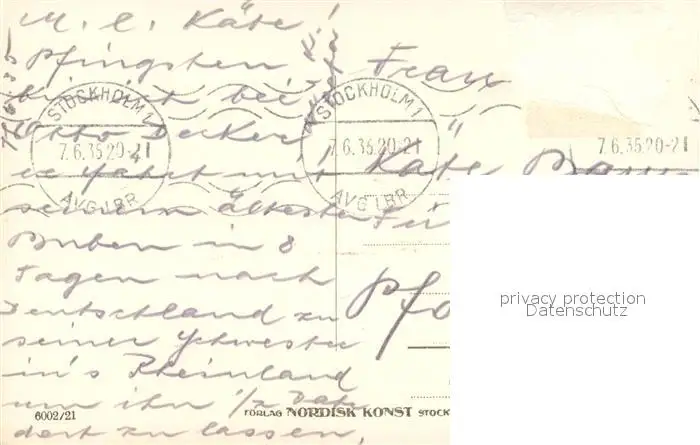 M. l. Käte!
Pfingsten
bin ich bei
Otto Decker
er fährt mit
seinem ältesten
Buben in 8
Tagen nach
Deutschland zu
seiner Schwester
in's Rheinland
um ihn 1/2 Jahr
dort zu lassen,
7/6.35
STOCKHOLM 1
7.6.35 20-21
AVG LBR
STOCKHOLM 1
7.6.35 20-21
AVG LBR
7.6.35 20-21
Frau
Käte
Pfo
6002/21
FÖRLAG NORDISK KONST STOCK
privacy protection
Datenschutz